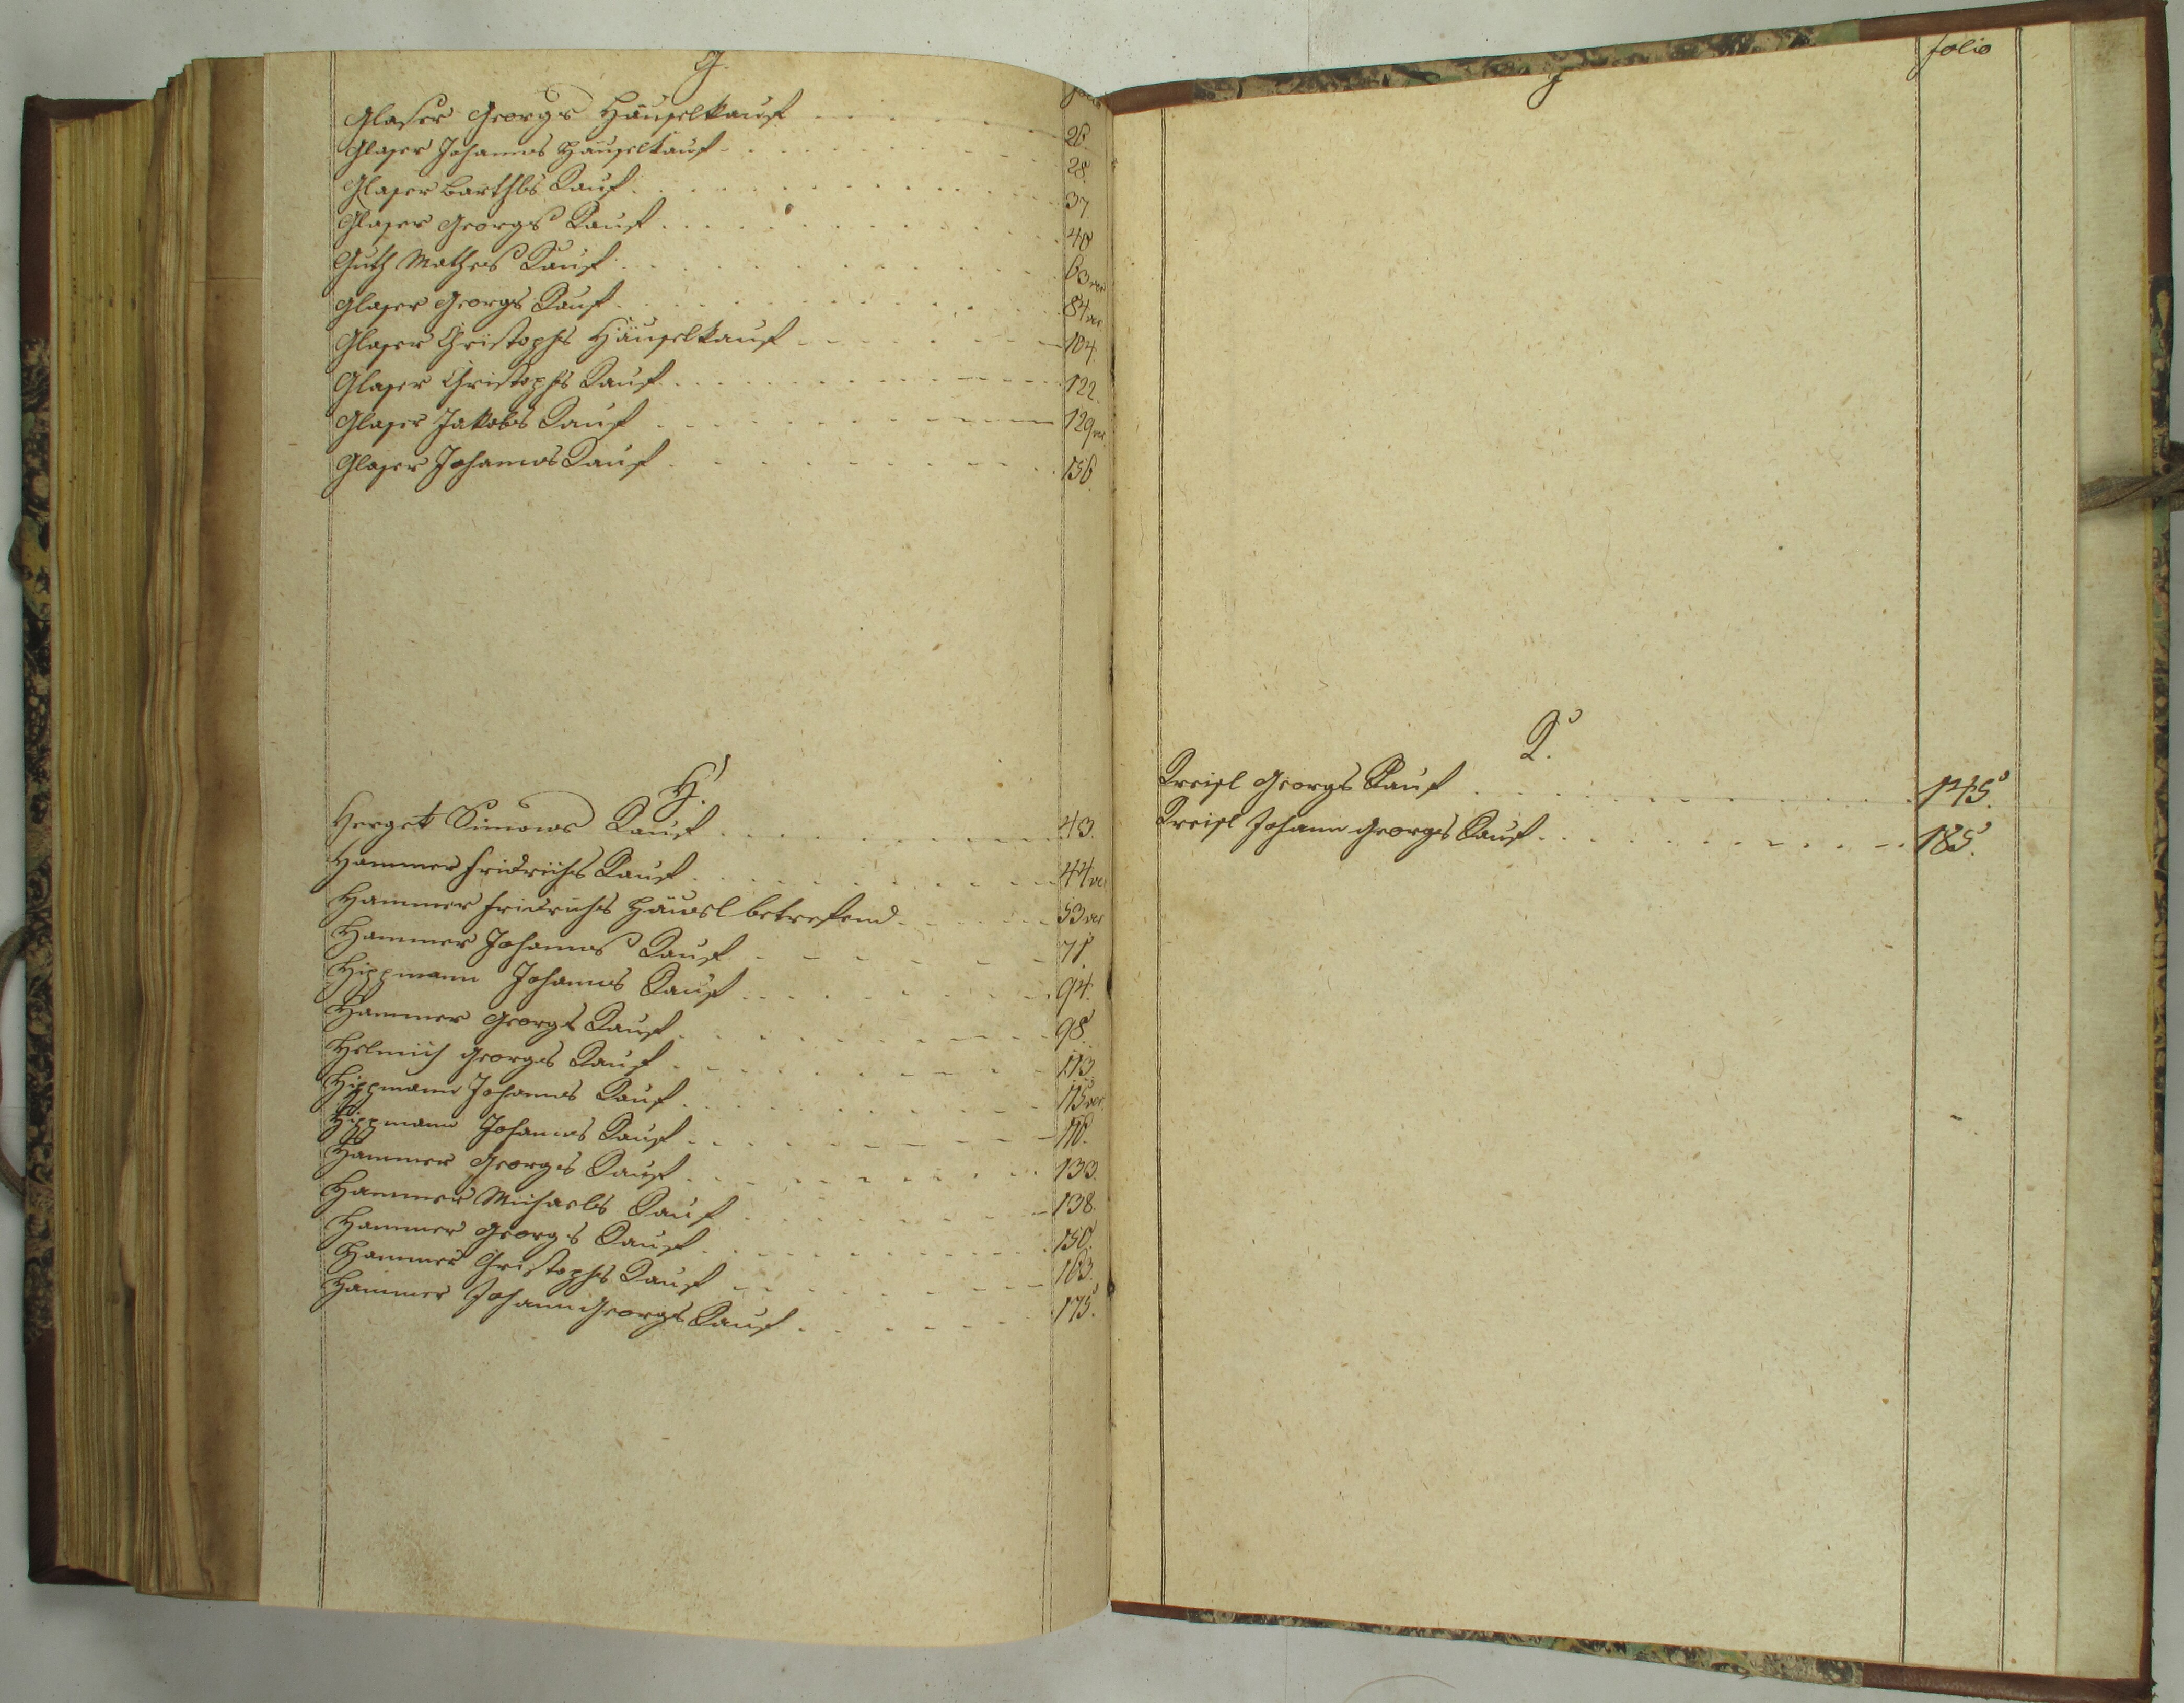 G.
folio
Glaser Georgs Häuselkauf 26.
Glaser Johannes Häuselkauf 28.
Glaser Barthls Kauf 37
Glaser Georgs Kauf 40
Guth Mathes Kauf 63 ver
Glaser Georgs Kauf 84 ver
Glaser Christophs Häuselkauf 104.
Glaser Christophs Kauf 122.
Glaser Jakobs Kauf 129 ver.
Glaser Johannes Kauf 156
H.
Herget Simons Kauf 43.
Hammer Fridrichs Kauf 44 ver
Hammer Fridrichs Häusl betrefend 53 ver
Hammer Johannes Kauf 71.
Hippmann Johannes Kauf 94.
Hammer Georgs Kauf 98.
Helmich Georgs Kauf 113.
Hippmann Johannes Kauf 115 ver.
Hippmann Johannes Kauf 116.
Hammer Georgs Kauf 133.
Hammer Michaels Kauf 138.
Hammer Georgs Kauf 150.
Hammer Christophs Kauf 163.
Hammer Johann Georgs Kauf 175.
J
folio
K.
Kreisl Georgs Kauf 145.
Kreisl Johann Georgs Kauf 185.